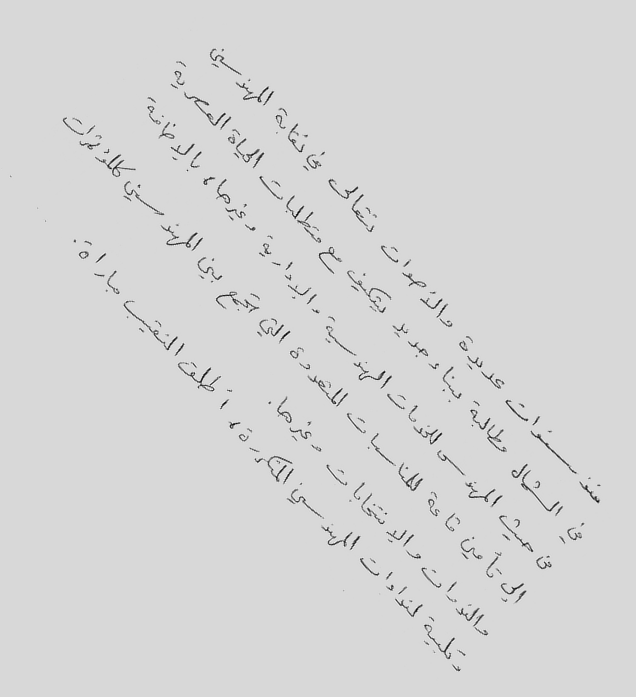 منذ سنوات عديدة والأصوات تتعالى في نقابة المهندسين
في الشمال مطالبة ببناء جديد يتكيف مع متطلبات الحياة العصرية
من حيث المهندس للخدمات الهندسية والإدارية وغيرها، بالإضافة
إلى تأمين قاعة للمناسبات المتعددة التي تجمع بين المهندسين كالمؤتمرات
والندوات والانتخابات وغيرها.
وتلبية لنداءات المهندسين المتكررة، أطلق النقيب مباراة.